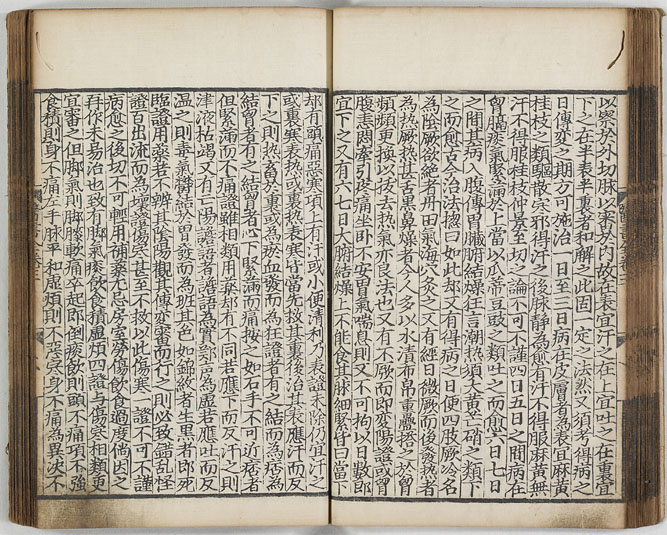 以察於外切脉以察於内故在表宜汗之在上宜吐之在裏宜
下之在半表半裏者和解之此固一定之法然又須考得病之
日傳變之期方可施治一日至三日病在皮膚者為表宜麻黄
桂枝之類驅散寒邪得汗之後脉静為愈有汗不得服麻黄無
汗不得服桂枝仲景至切之論不可不謹四日五日之間病在
胷膈痰氣緊滿於上當以瓜蒂豆豉之類吐之而愈六日七日
之間其病入腹傳胃臓腑結燥狂言潮熱須大黄芒硝之類下
之而愈古今治法揔曰如此却又有得病之日便四肢厥冷名
為陰厥欲絶者丹田氣海穴灸之又有經日微厥而後發熱者
為熱厥熱甚舌黒鼻燥者今人多以水漬布帛重疊搭之於胷
頻頻更換以拔去熱氣亦良法也又有不厥而即變陽證或胷
腹恚悶牽引疼痛坐卧不安冒氣喘息則又不可拘以日數即
宜下之又有六七日大腑結燥上不能食其脉細緊皆曰當下
却有頭痛惡寒項上有汗或小便清利乃表證未除仍宜汗之
或裏寒表熱或裏熱表寒皆當先救其裏後治其表應汗而反
下之則熱畜於裏或為瘀血發而為狂證者有之結而為痞為
結胷者有之結胷者心下緊滿而痛按之如石手不可近痞者
但緊滿而不痛證雖相類用藥却有不同若應下而反汗之則
津液枯竭又有亡陽譫語者譫語為實鄭聲為虚若應吐而反
温之則毒氣鬱結於胃發而為班其色如錦紋者生黒者即死
臨證用藥若不辨其陰陽觀其傳變審而行之則必致錯亂怪
證百出流而為壞證傷寒甚至不救以此傷寒一證不可不謹
病愈之後切不可輕用補藥尤忌房室勞傷飲食過度倘因之
再作未易治也致有脚氣痰飲食積虚煩四證与傷寒相類更
宜審之但脚氣則脚膝軟痛卒起即倒痰飲則頭不痛項不強
食積則身不痛左手脉平和虚煩則不惡寒身不痛為異决不